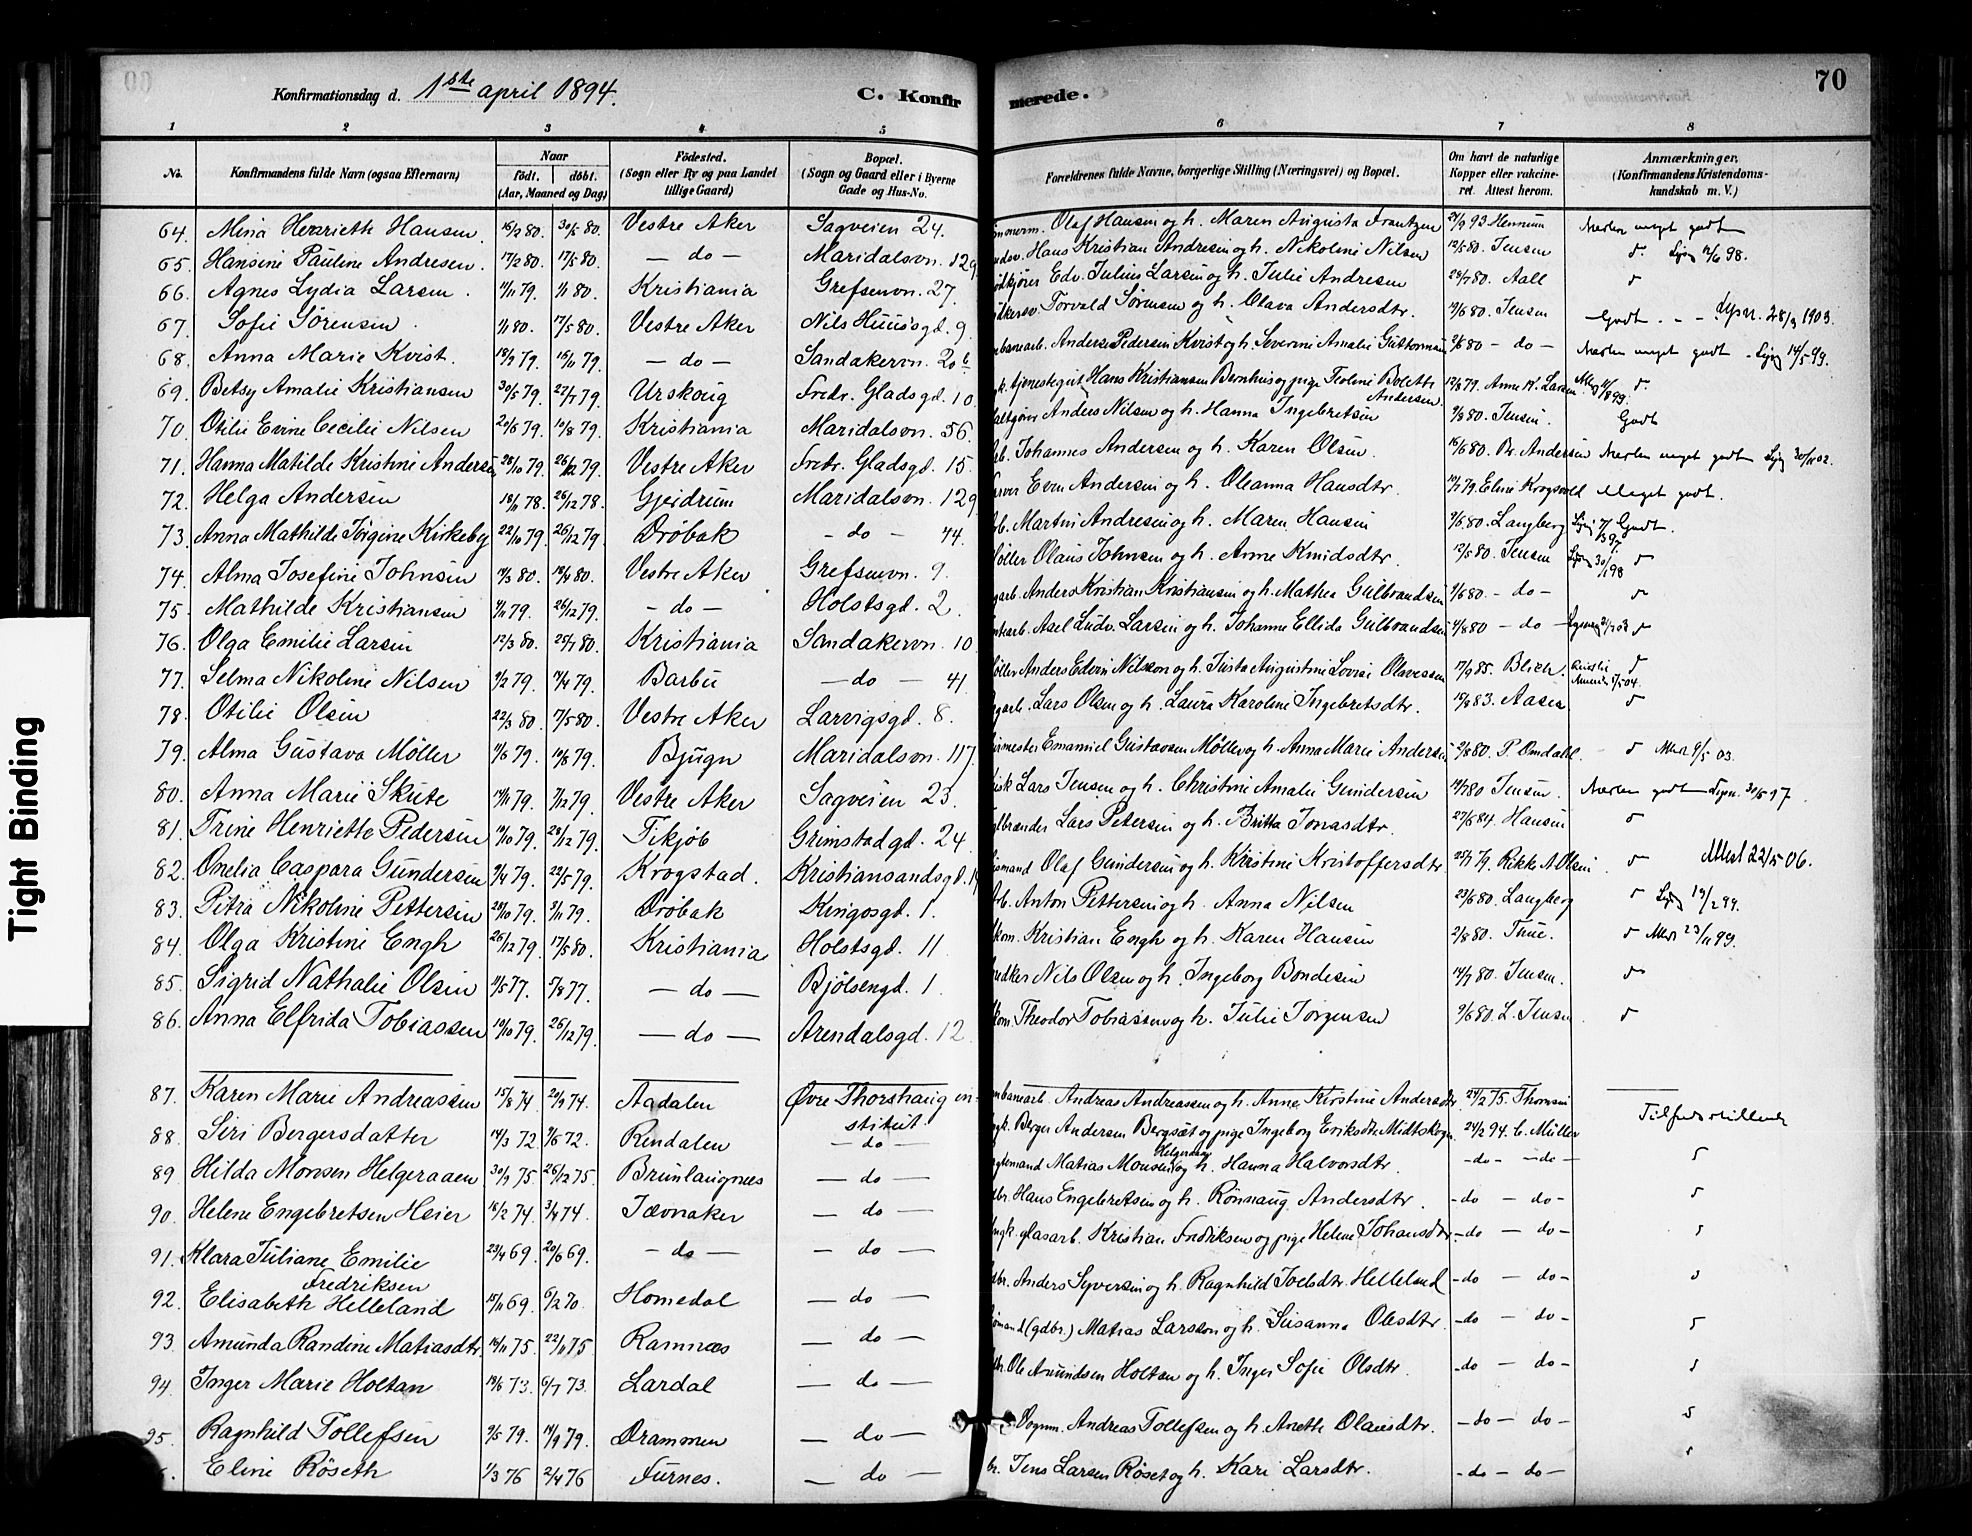 Tight Binding
Konfirmationsdag d. 1ste april 1894. C. Konfirmerede. 70
1 2 3 4 5 6 7 8
No. Konfirmandens fulde Navn (ogsaa Efternavn) Naar födt. döbt. (Aar, Maaned og Dag) Födested. (Sogn eller By og paa Landet tillige Gaard) Bopæl. (Sogn og Gaard eller i Byerne Gade og Hus-No. Forældrenes fulde Navne, borgerlige Stilling (Næringsvei) og Bopæl. Om havt de naturlige Kopper eller vaccineret. Attest herom. Anmærkninger, (Konfirmandens Kristendomskundskab m. V.)
64. Mina Henriette Hansen. 16/2 80. 30/5 80. Vestre Aker Sagveien 24. Olaf Hansen og h. Maren Augusta Frantzen 21/9 93 Hennum Næsten meget godt
65. Hansine Pauline Andresen. 17/2 80. 17/5 80. — do — Maridalsvn. 129 Hans Kristian Andresen og h. Nikoline Nilsen 12/5 80. Jensen
66. Agnes Lydia Larsen. 11/11 79. 1/1 80. Kristiania Grefsenvn. 27. Edv. Julius Larsen og h. Julie Andresen 28/7 80. Aall
67. Sofie Sörensen. 1/1 80. 17/5 80. Vestre Aker Nils Huusgd. 9. Torvald Sörensen og h. Olava Andersdtr. 19/6 80. Jensen Godt. 28/3 1903.
68. Anna Marie Kvist. 18/9 79. 16/11 79. — do — Sandakervn. 20b Anders Pedersen Kvist og h. Severine Amalie Guttormsen 2/6 80 — do — Næsten meget godt 14/5 99.
69. Betsy Amalie Kristiansen 30/5 79. 27/7 79. Urskoug Fredr. Gladsgd. 10. Hans Kristiansen Bernhus og pige Teoline Bolette Andersen. 12/8 79. Anne K. Larsen
70. Otilie Evine Cecilie Nilsen 20/6 79. 10/8 79. Kristiania Maridalsvn. 56. Anders Nilsen og h. Hanna Ingebretsen 9/8 80. Jensen. Godt
71. Hanna Matilde Kristine Andersen 28/10 79. 26/12 79. Vestre Aker Fredr. Gladsgd. 15. Johannes Andersen og h. Karen Olsen. 16/6 80. Br. Andersen Næsten meget godt
72. Helga Andersen 18/11 78. 26/12 78. Gjeidrum Maridalsvn. 129. Even Andersen og h. Oleanna Hansdtr. 10/7 79. Eline Krogsvold Meget godt.
73. Anna Mathilde Jörgine Kirkeby 22/10 79. 26/12 79. Dröbak — do — 44. Martin Andresen og h. Maren Hansen 9/6 80. Langberg Godt.
74. Alma Josefine Johnsen 14/3 80. 18/4 80. Vestre Aker Grefsenvn. 9. Olaus Johnsen og h. Anne Knudsdtr. 12/5 80. Jensen
75. Mathilde Kristiansen 9/11 79. 26/12 79. — do — Holstsgd. 2. Anders Kristian Kristiansen og h. Mathea Gulbrandsen 2/6 80. — do —
76. Olga Emilie Larsen 12/3 80. 25/7 80. Kristiania Sandakervn. 10 Axel Ludv. Larsen og h. Johanne Ellida Gulbrandsen 4/8 80 — do —
77. Selma Nikoline Nilsen 9/2 79. 14/4 79. Barbu — do — 41. Anders Edvin Nilsson og h. Justa Augustine Lovise Olavessen 17/9 85. Blich.
78. Otilie Olsen 22/3 80. 17/5 80. Vestre Aker Larvigsgd. 8. Lars Olsen og h. Laura Karoline Ingebretsdtr. 15/8 83. Aasen
79. Alma Gustava Möller 11/6 79. 10/8 79. Bjugn Maridalsvn. 117. Emanuel Gustavsen Møller og h. Anna Marie Andersen 2/8 80. P. Omdahl. 9/5 03.
80. Anna Marie Skute 14/11 79. 7/12 79. Vestre Aker Sagveien 23. Lars Jensen og h. Christine Amalie Gundersen 14/7 80 Jensen. Næsten godt
81. Trine Henriette Pedersen 19/10 79. 28/12 79. Tikjöb Grimstadgd. 24. Lars Petersen og h. Britta Jonasdtr. 27/6 84. Hansen
82. Onelia Caspara Gundersen 9/4 79. 22/5 79. Krogstad. Kristiansandsgd. Olaf Gundersen og h. Kirstine Kristoffersdtr. Rikke A. Olsen 22/5 06.
83. Petra Nikoline Pettersen 28/10 79. 9/11 79. Dröbak Kingosgd. 1. Anton Pettersen og h. Anna Nilsen 23/6 80. Langberg 19/2 99.
84. Olga Kristine Engh 26/12 79. 17/5 80. Kristiania Holstsgd. 11. Kristian Engh og h. Karen Hansen 2/8 80. Thue. 23/11 99.
85. Sigrid Nathalie Olsen 11/5 77. 5/8 77. — do — Bjölsengd. 1. Nils Olsen og h. Ingeborg Bondesen 14/7 80. Jensen.
86. Anna Elfrida Tobiassen 19/10 79. 26/12 79. — do — Arendalsgd. 12 Theodor Tobiassen og h. Julie Jörgensen 9/6 80. L. Jensen
87. Karen Marie Andreassen 15/8 74. 20/9 74. Aadalen Øvre Thorshaug institut. Andreas Andreassen og h. Anne Kirstine Andersdtr. 24/2 75. Thomsen Tilfredsstillende
88. Siri Bergersdatter 14/3 72. 9/6 72. Rendalen — do — Berger Andersen Bergsæt og pige Ingeborg Eriksdtr Midtskogn. 24/2 94. C. Müller
89. Hilda Monsen Helgeraaen 30/9 75. 26/12 75. Brunlaugnæs — do — Matias Monsen Helgeraaen og h. Hanna Halvorsdtr. — do — — do —
90. Helene Engebretsen Heier 16/2 74. 3/4 74. Jævnaker — do — Hans Engebretsen og h. Rönnaug Andersdtr. — do — do —
91. Klara Juliane Emilie Fredriksen 23/4 69. 20/6 69. — do — — do — glasarb. Kristian Fredriksen og pige Helene Johansdtr. — do — do —
92. Elisabeth Helleland 15/11 69. 6/2 70. Homedal — do — Anders Syversen og h. Ragnhild Joelsdtr. Helleland — do — do —
93. Amunda Randine Matiasdtr. 16/11 75. 22/11 75. Ramnæs — do — (gdbr.) Matias Larsson og h. Susanna Olesdtr. — do — do —
94. Inger Marie Holtan 19/6 73. 6/7 73. Lardal — do — Ole Amundsen Holtan og h. Inger Sofie Olsdtr. — do — do —
95. Ragnhild Tollefsen 9/5 79. 14/9 79. Drammen — do — Andreas Tollefsen og h. Anette Olausdtr. — do — do —
Eline Röseth 1/3 76 2/4 76 Furnes. — do — Jens Larsen Röset og h. Kari Larsdtr. — do — do —